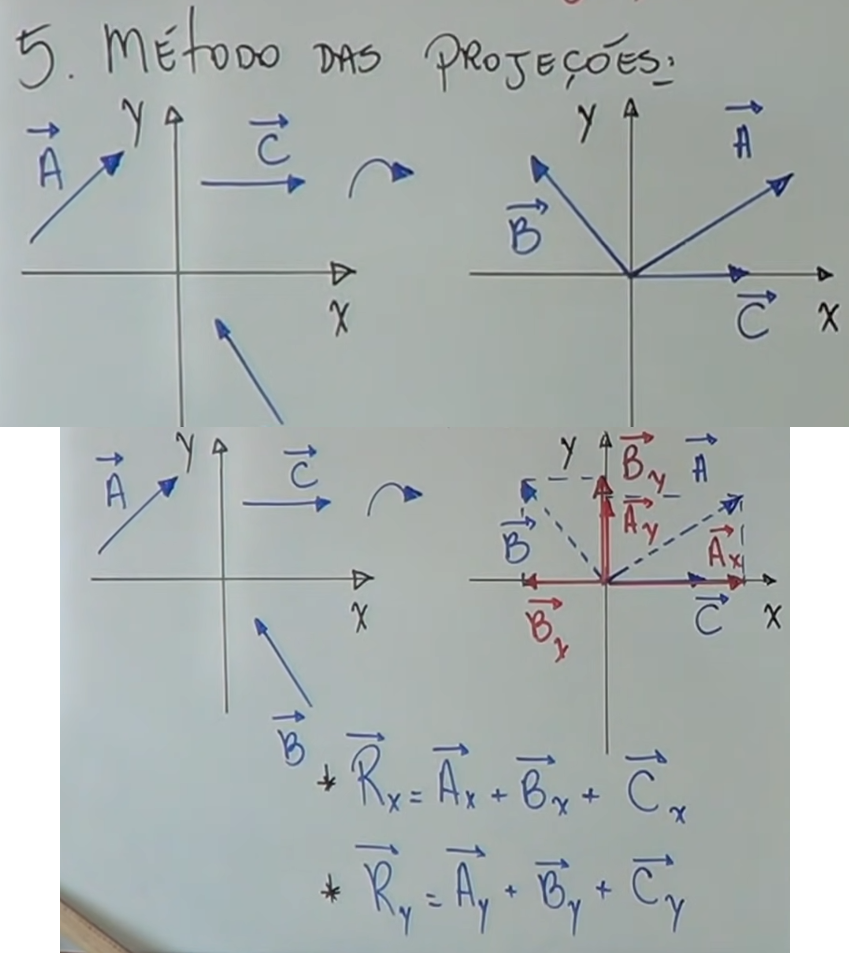 5. MÉTODO DAS PROJEÇÕES:
Y A C Y A
B
X C X
Y C Y B_y A
A A_y
B A_x
X B_x C X
B
* R_x = A_x + B_x + C_x
* R_y = A_y + B_y + C_y